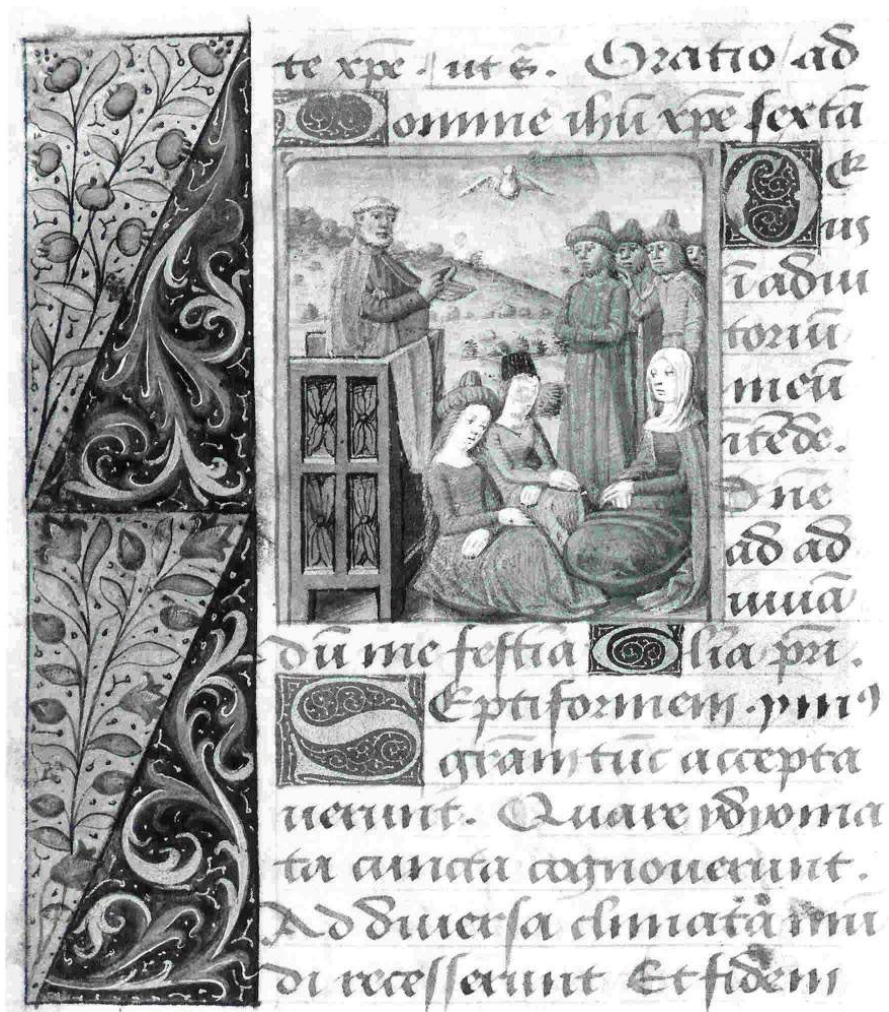 te xp̄e. ut s̄. Oratio ad
Domine ihū xp̄e sextā
De
us
ī adiu
toriū
meū
ītēde.
Dn̄e
ad ad
iuuā
dū me festīa Glīa pr̄i.
Septiformem. ymꝰ
gr̄am tūc accepta
uerunt. Quare ydyoma
ta cuncta cognouerunt.
Ad diuersa climata mū
di recesserunt Et fidem